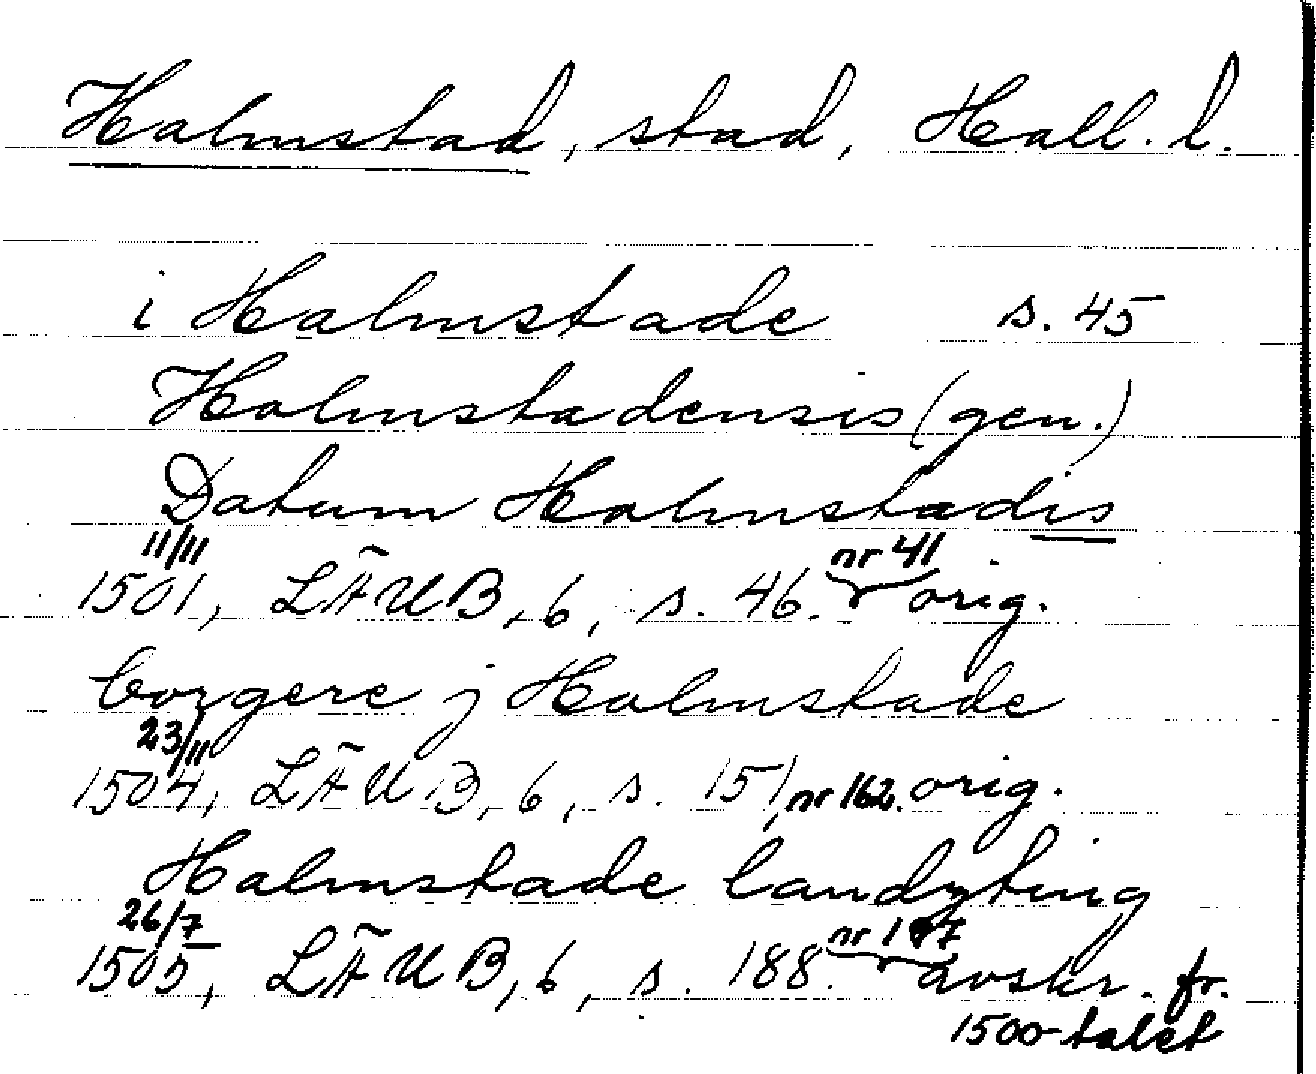 Halmstad, stad, Hall. l.
i Halmstade s. 45
Halmstadensis (gen.)
Datum Halmstadis
11/11
1501, LÄUB, 6, s. 46. nr 41 orig.
borgere j Halmstade
23/11
1504, LÄUB, 6, s. 151, nr 162. orig.
Halmstade landzting
26/7
1505, LÄUB, 6, s. 188. nr avskr. fr.
1500-talet